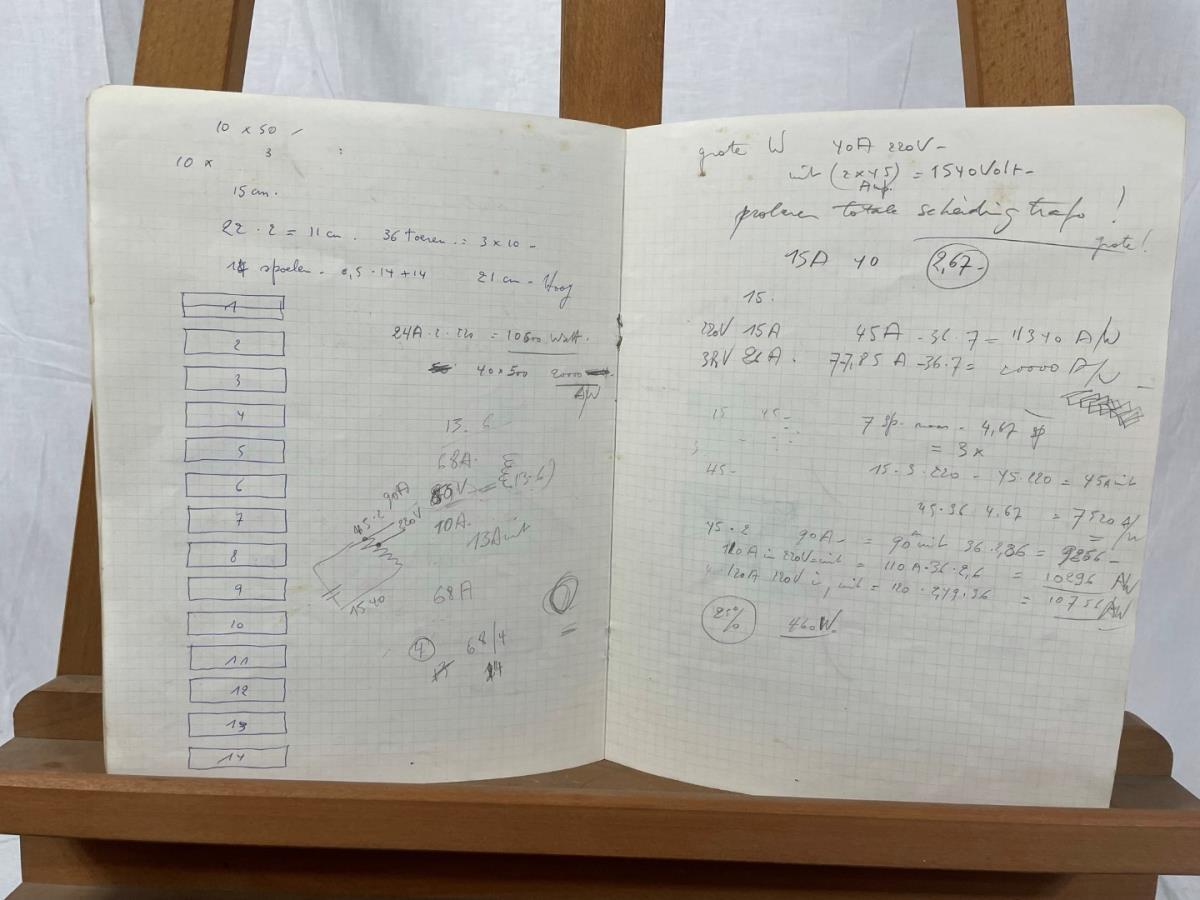 10 x 50
10 x 3 :
15 cm.
22 · 2 = 11 cm. 36 toeren = 3 x 10 -
14 spoelen - 0,5 · 14 + 14 21 cm - Hoog
1
2
3
4
5
6
7
8
9
10
11
12
13
14
24A · 2 · 220 = 10600 Watt.
40 x 500 20000
A/W
15. 6
68A.
45 · 2 90A
220V
10A.
13A uit
1540
68A
4 68/4
grote W 40A 220V -
uit (2 x 45) = 1540 Volt -
Amp.
proberen totale scheiding trafo !
grote!
15A 40 2,67 -
15.
220V 15A 45A - 36 · 7 = 11340 A/W
77,85 A - 36 · 7 = 20000 A/W
15 45 =
7 sp. 4,67 sp
= 3 x
45 - 15 · 3 · 220 - 45 · 220 = 45A uit
45 · 36 · 4,67 = 7520 A/W
45 · 2 90A - = 90A uit 36 · 2,86 = 9256 -
110A in 220V = uit = 110A · 36 · 2,6 = 10296 AW
120A 120V in, uit = 120 · 2,49 · 36 = 10756 AW
25% 460W.